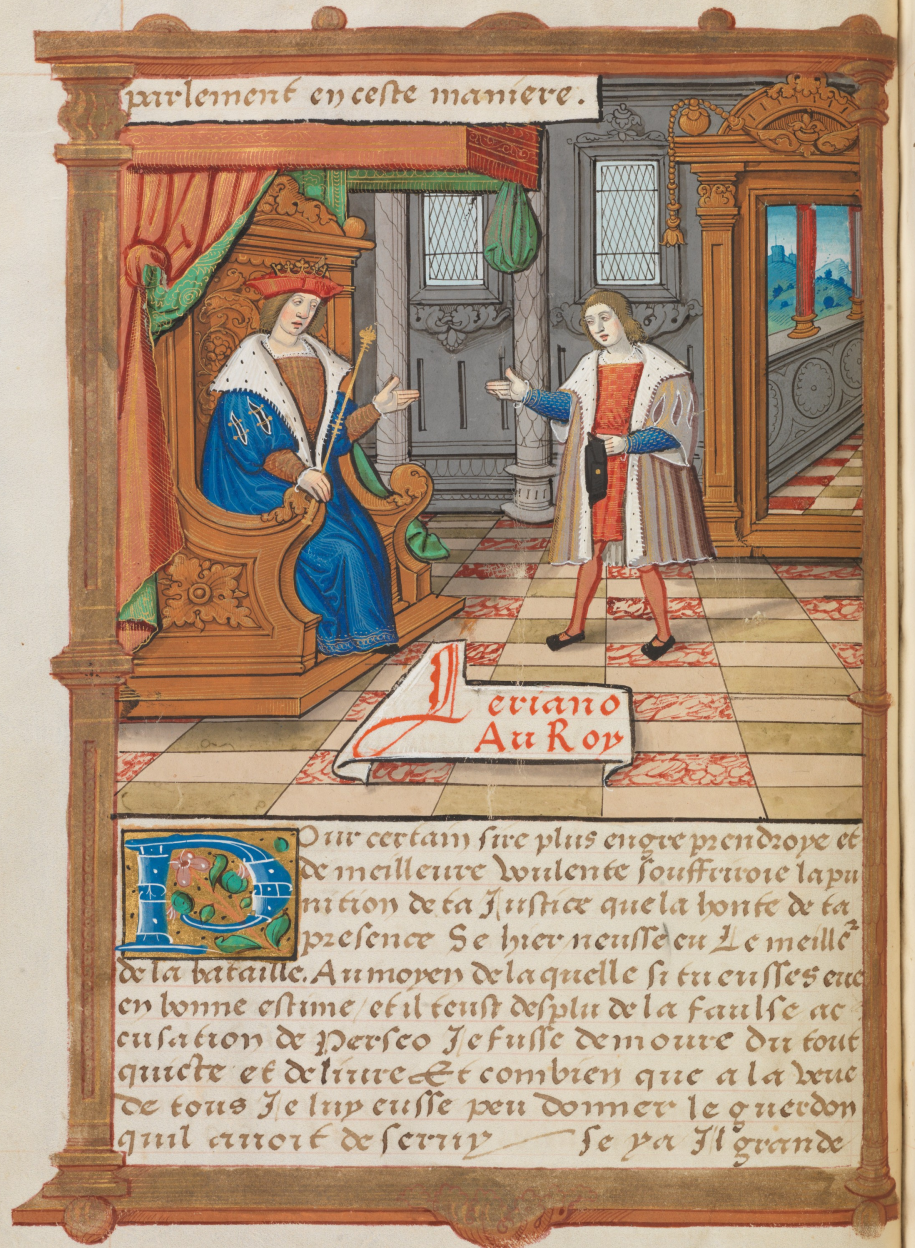 parlement en ceste maniere.
Leriano
Au Roy
Pour certain sire plus engre prendroye et
de meilleure voulente souffriroie la pu
nition de ta Justice que la honte de ta
presence Se hier neusse eu Le meille͂
de la bataille. Au moyen de laquelle si tu eusses eue
en bonne estime / et il teust desplu de la faulse ac
cusation de Perseo Je fusse demoure du tout
quicte et deliure Et combien que a la veue
de tous Je luy eusse peu donner le guerdon
quil auoit deseruy se ya Il grande